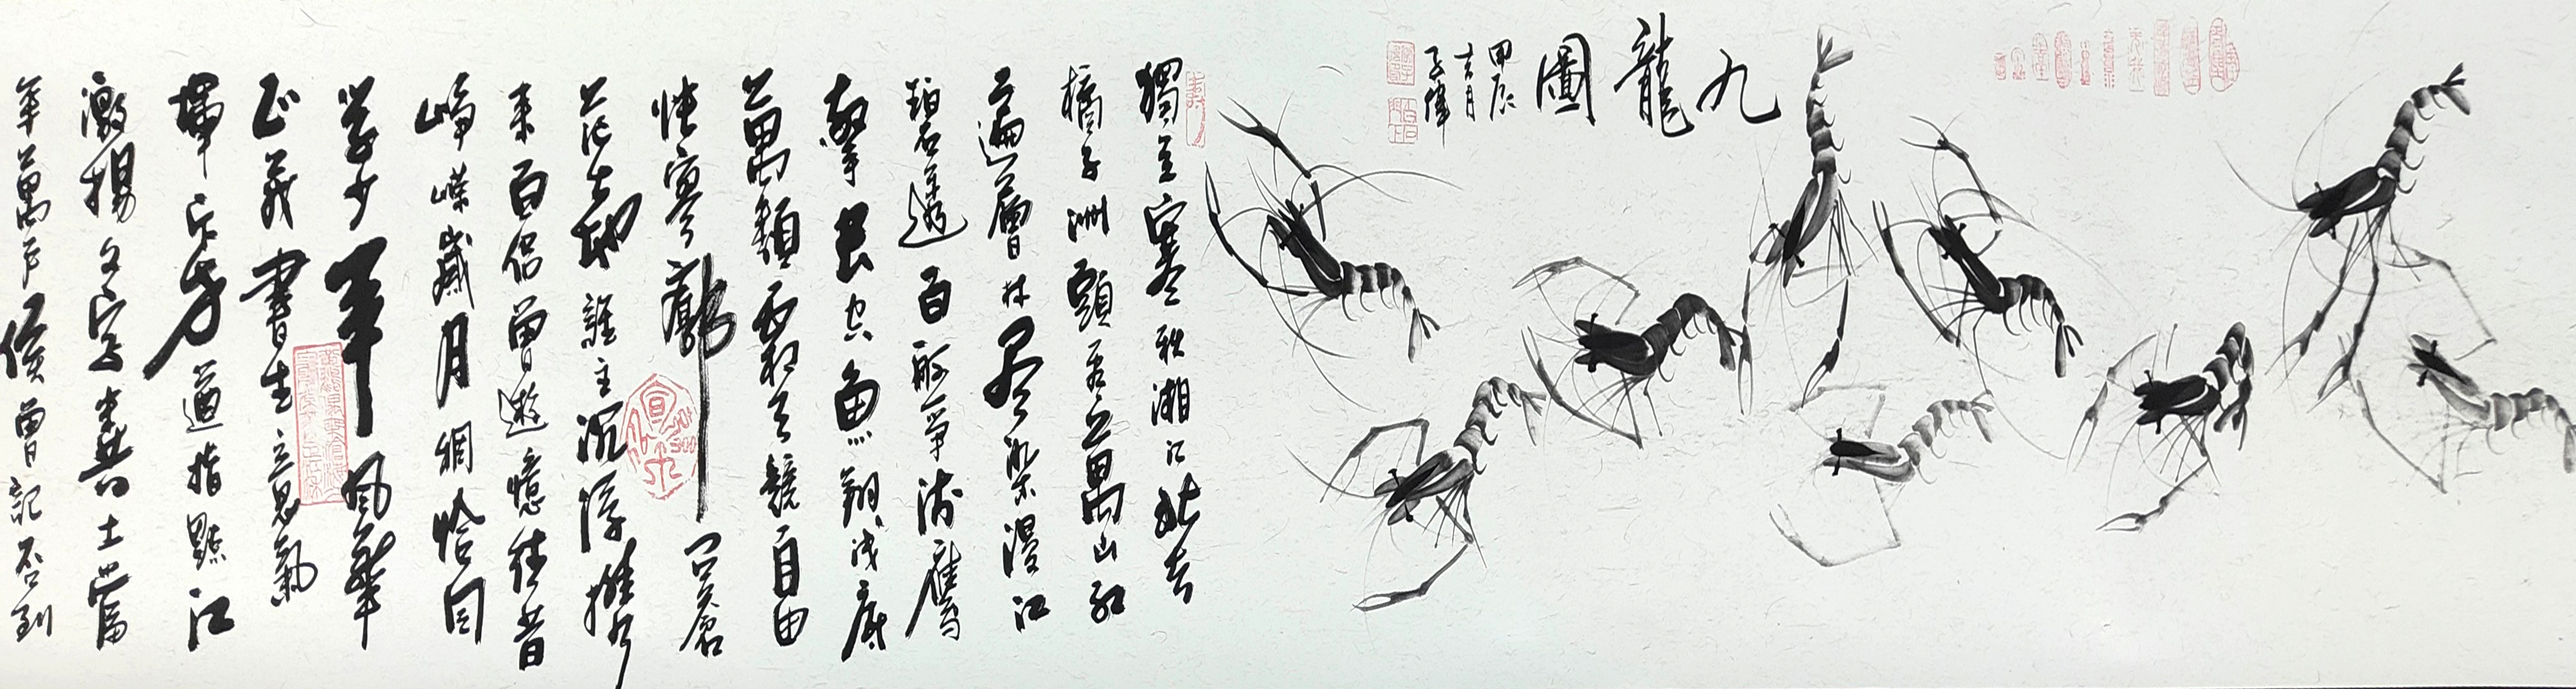 九龍圖
甲辰
吉月
子偉
獨立寒秋湘江北去
橘子洲頭看萬山紅
遍層林尽染漫江
碧透百舸争流鷹
擊長空魚翔浅底
萬類霜天競自由
悵寥廓问蒼
茫大地誰主沉浮攜
来百侣曾遊憶往昔
崢嶸歲月稠恰同
学少年風華
正茂書生意氣
揮斥方遒指點江
激揚文字糞土當
年萬户侯曾記否到